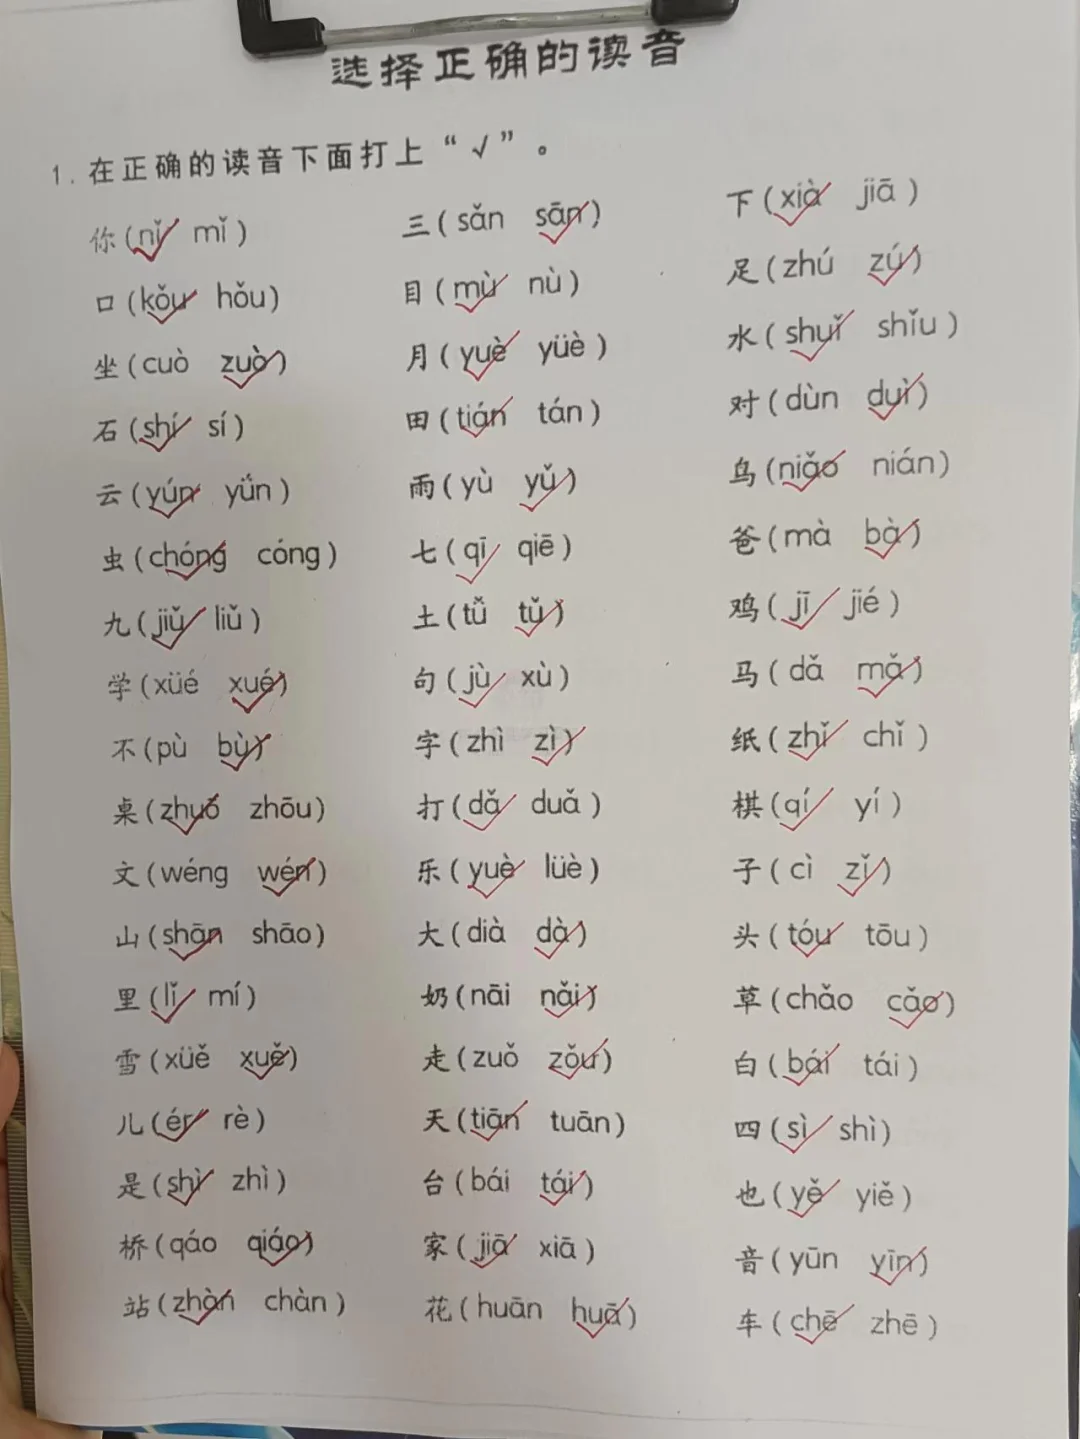 选择正确的读音
1.在正确的读音下面打上“√”。
你(nǐ mǐ) 三(sǎn sān) 下(xià jiā)
口(kǒu hǒu) 目(mù nù) 足(zhú zú)
坐(cuò zuò) 月(yuè yüè) 水(shuǐ shǐu)
石(shí sí) 田(tián tán) 对(dùn duì)
云(yún yǘn) 雨(yù yǔ) 鸟(niǎo nián)
虫(chóng cóng) 七(qī qiē) 爸(mà bà)
九(jiǔ liǔ) 土(tǚ tǔ) 鸡(jī jié)
学(xüé xué) 句(jù xù) 马(dǎ mǎ)
不(pù bù) 字(zhì zì) 纸(zhǐ chǐ)
桌(zhuō zhōu) 打(dǎ duǎ) 棋(qí yí)
文(wéng wén) 乐(yuè lüè) 子(cì zǐ)
山(shān shāo) 大(dià dà) 头(tóu tōu)
里(lǐ mí) 奶(nāi nǎi) 草(chǎo cǎo)
雪(xüě xuě) 走(zuǒ zǒu) 白(bái tái)
儿(ér rè) 天(tiān tuān) 四(sì shì)
是(shì zhì) 台(bái tái) 也(yě yiě)
桥(qáo qiáo) 家(jiā xiā) 音(yūn yīn)
站(zhàn chàn) 花(huān huā) 车(chē zhē)